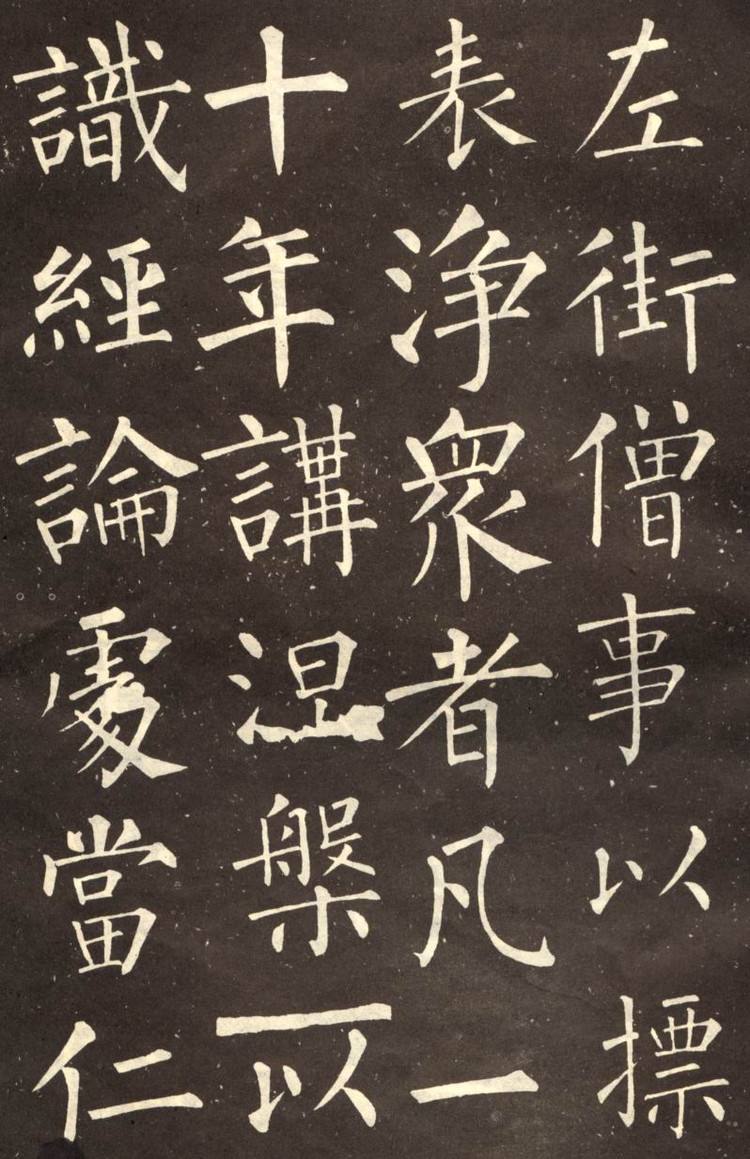 左街僧事以摽
表浄衆者凡一
十年講涅槃以
識經論處當仁